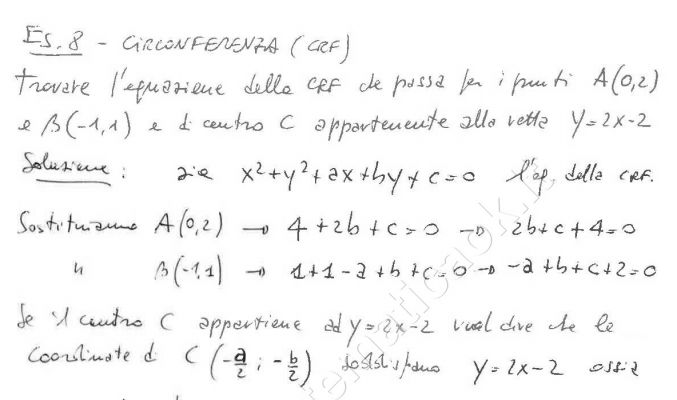 Es. 8 - CIRCONFERENZA (CRF)
Trovare l'equazione della CRF che passa per i punti A(0,2)
e B(-1,1) e di centro C appartenente alla retta y=2x-2
Soluzione: sia x²+y²+ax+by+c=0 l'eq. della CRF.
Sostituiamo A(0,2) → 4+2b+c=0 → 2b+c+4=0
" B(-1,1) → 1+1-a+b+c=0 → -a+b+c+2=0
Se il centro C appartiene ad y=2x-2 vuol dire che le
coordinate di C (-a/2 ; -b/2) soddisfano y=2x-2 ossia